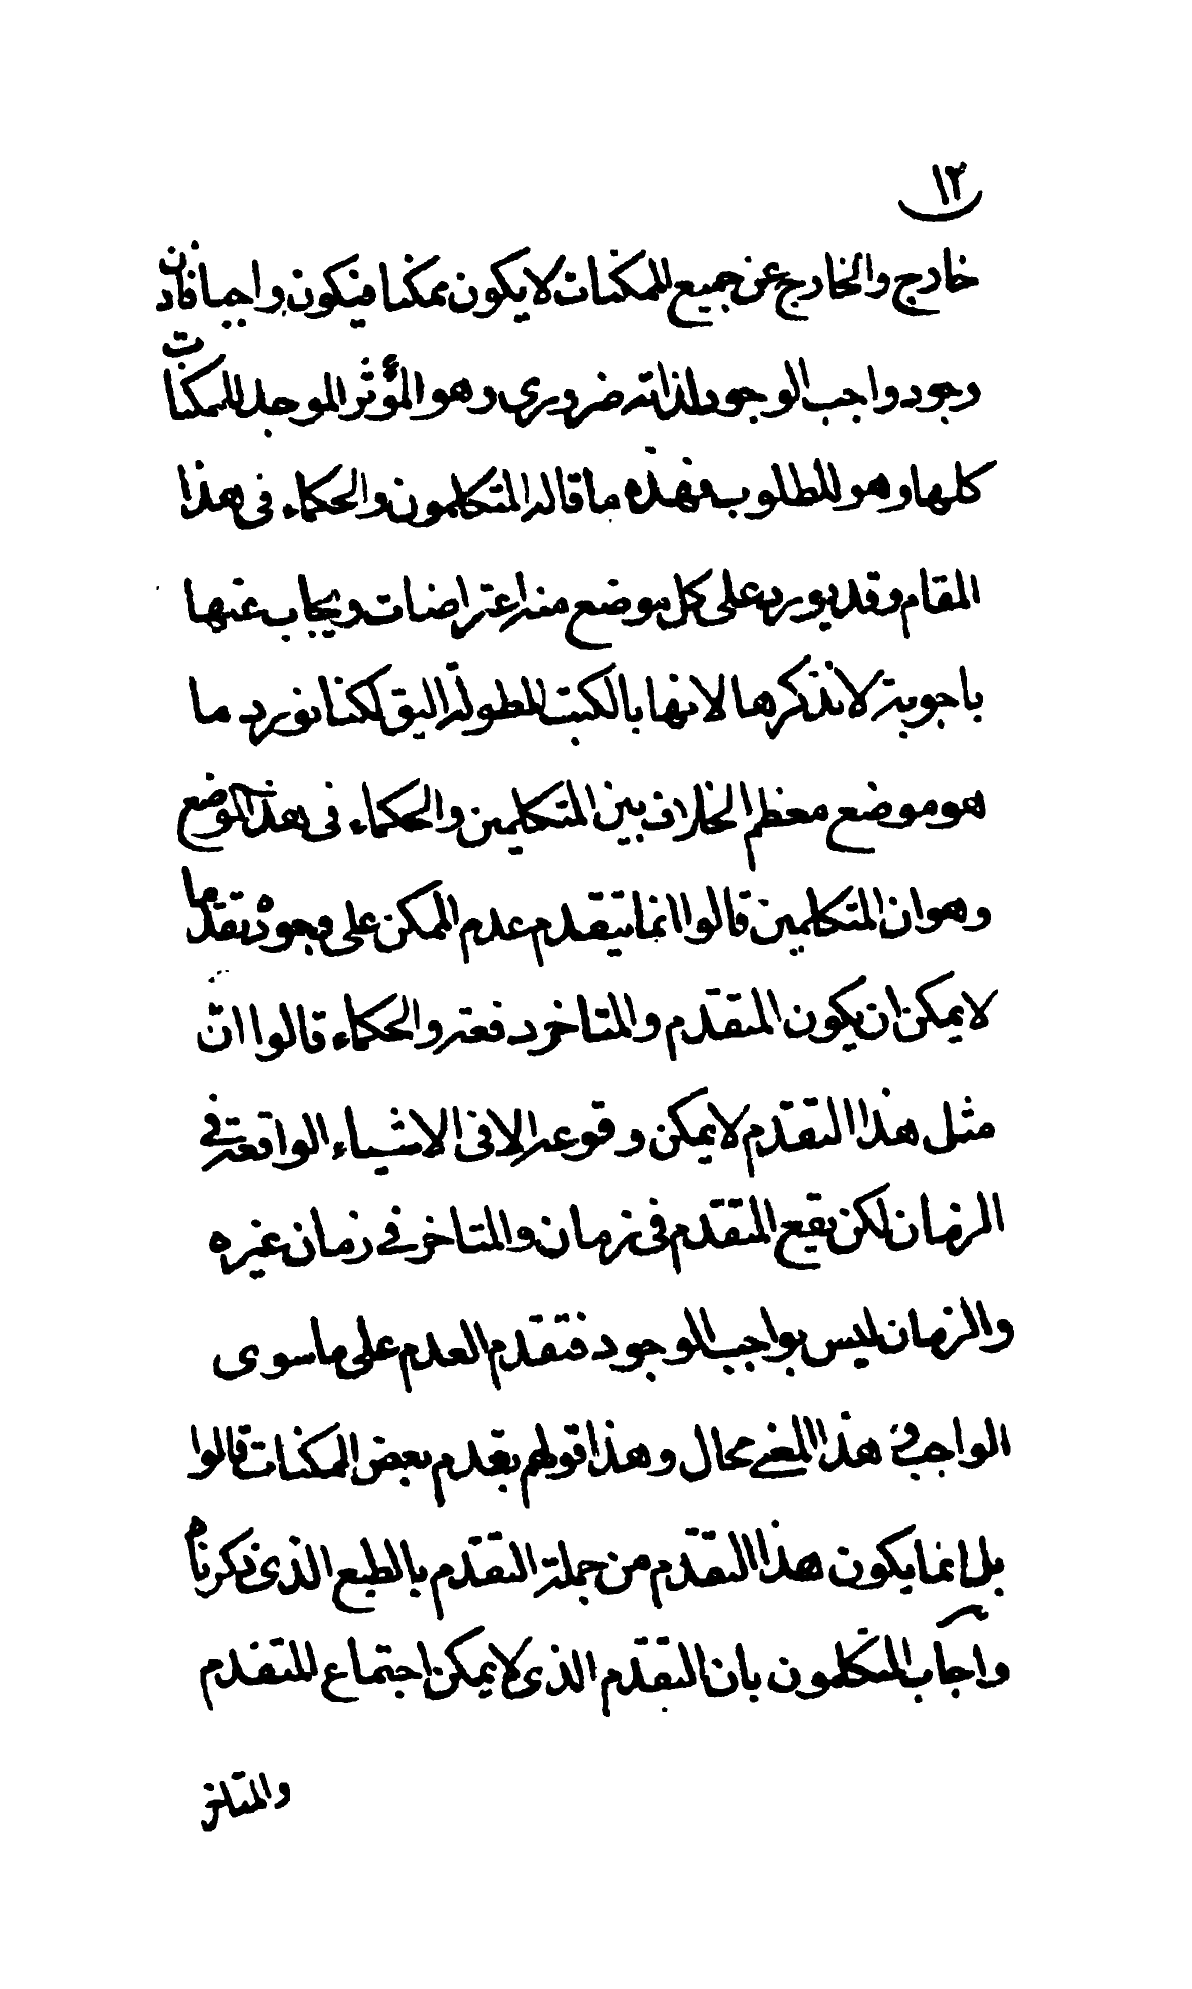 ١٢
خارج والخارج عن جميع الممكنات لا يكون ممكنا فيكون واجبا فاذن
وجود واجب الوجود لذاته ضروري وهو المؤثر الموجد للممكنات
كلها وهو المطلوب فهذه ما قاله المتكلمون والحكماء في هذا
المقام وقد يورد على كل موضع منه اعتراضات ويجاب عنها
باجوبة لا نذكرها لانها بالكتب المطولة اليق لكننا نورد ما
هو موضع معظم الخلاف بين المتكلمين والحكماء في هذا الموضع
وهو ان المتكلمين قالوا انما يتقدم عدم الممكن على وجوده تقدما
لا يمكن ان يكون المتقدم والمتاخر دفعة والحكماء قالوا انّ
مثل هذا التقدم لا يمكن وقوعه الا في الاشياء الواقعة في
الزمان لكن يقع المتقدم في زمان والمتاخر في زمان غيره
والزمان ليس بواجب الوجود فتقدم العدم على ما سوى
الواجب في هذا المعنى محال وهذا قولهم بقدم بعض الممكنات قالوا
بل انما يكون هذا التقدم من جملة التقدم بالطبع الذي ذكرناه
واجاب المتكلمون بان التقدم الذي لا يمكن اجتماع المتقدم
والمتاخر